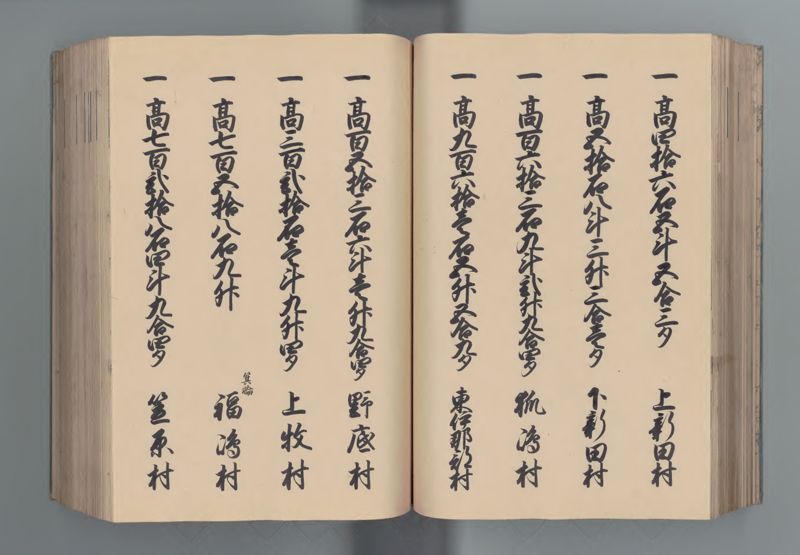 一 高四拾六石五斗五合三夕 上新田村
一 高五拾石八斗三升三合壱夕 下新田村
一 高百六拾三石九斗弐升九合四夕 狐嶋村
一 高九百六拾壱石五升五合九夕 東伊那部村
一 高百五拾三石六斗壱升九合四夕 野底村
一 高三百弐拾石壱斗九升四夕 上牧村
一 高七百五拾八石九升 福嶋村
箕輪
一 高七百弐拾八石四斗九合四夕 笠原村